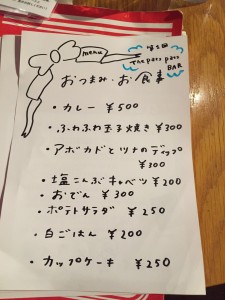 menu
第2回
The pass pass
BAR
おつまみ・お食事
・カレー ¥500
・ふわふわ玉子焼き ¥300
・アボカドとツナのディップ
¥300
・塩こんぶキャベツ ¥200
・おでん ¥300
・ポテトサラダ ¥250
・白ごはん ¥200
・カップケーキ ¥250